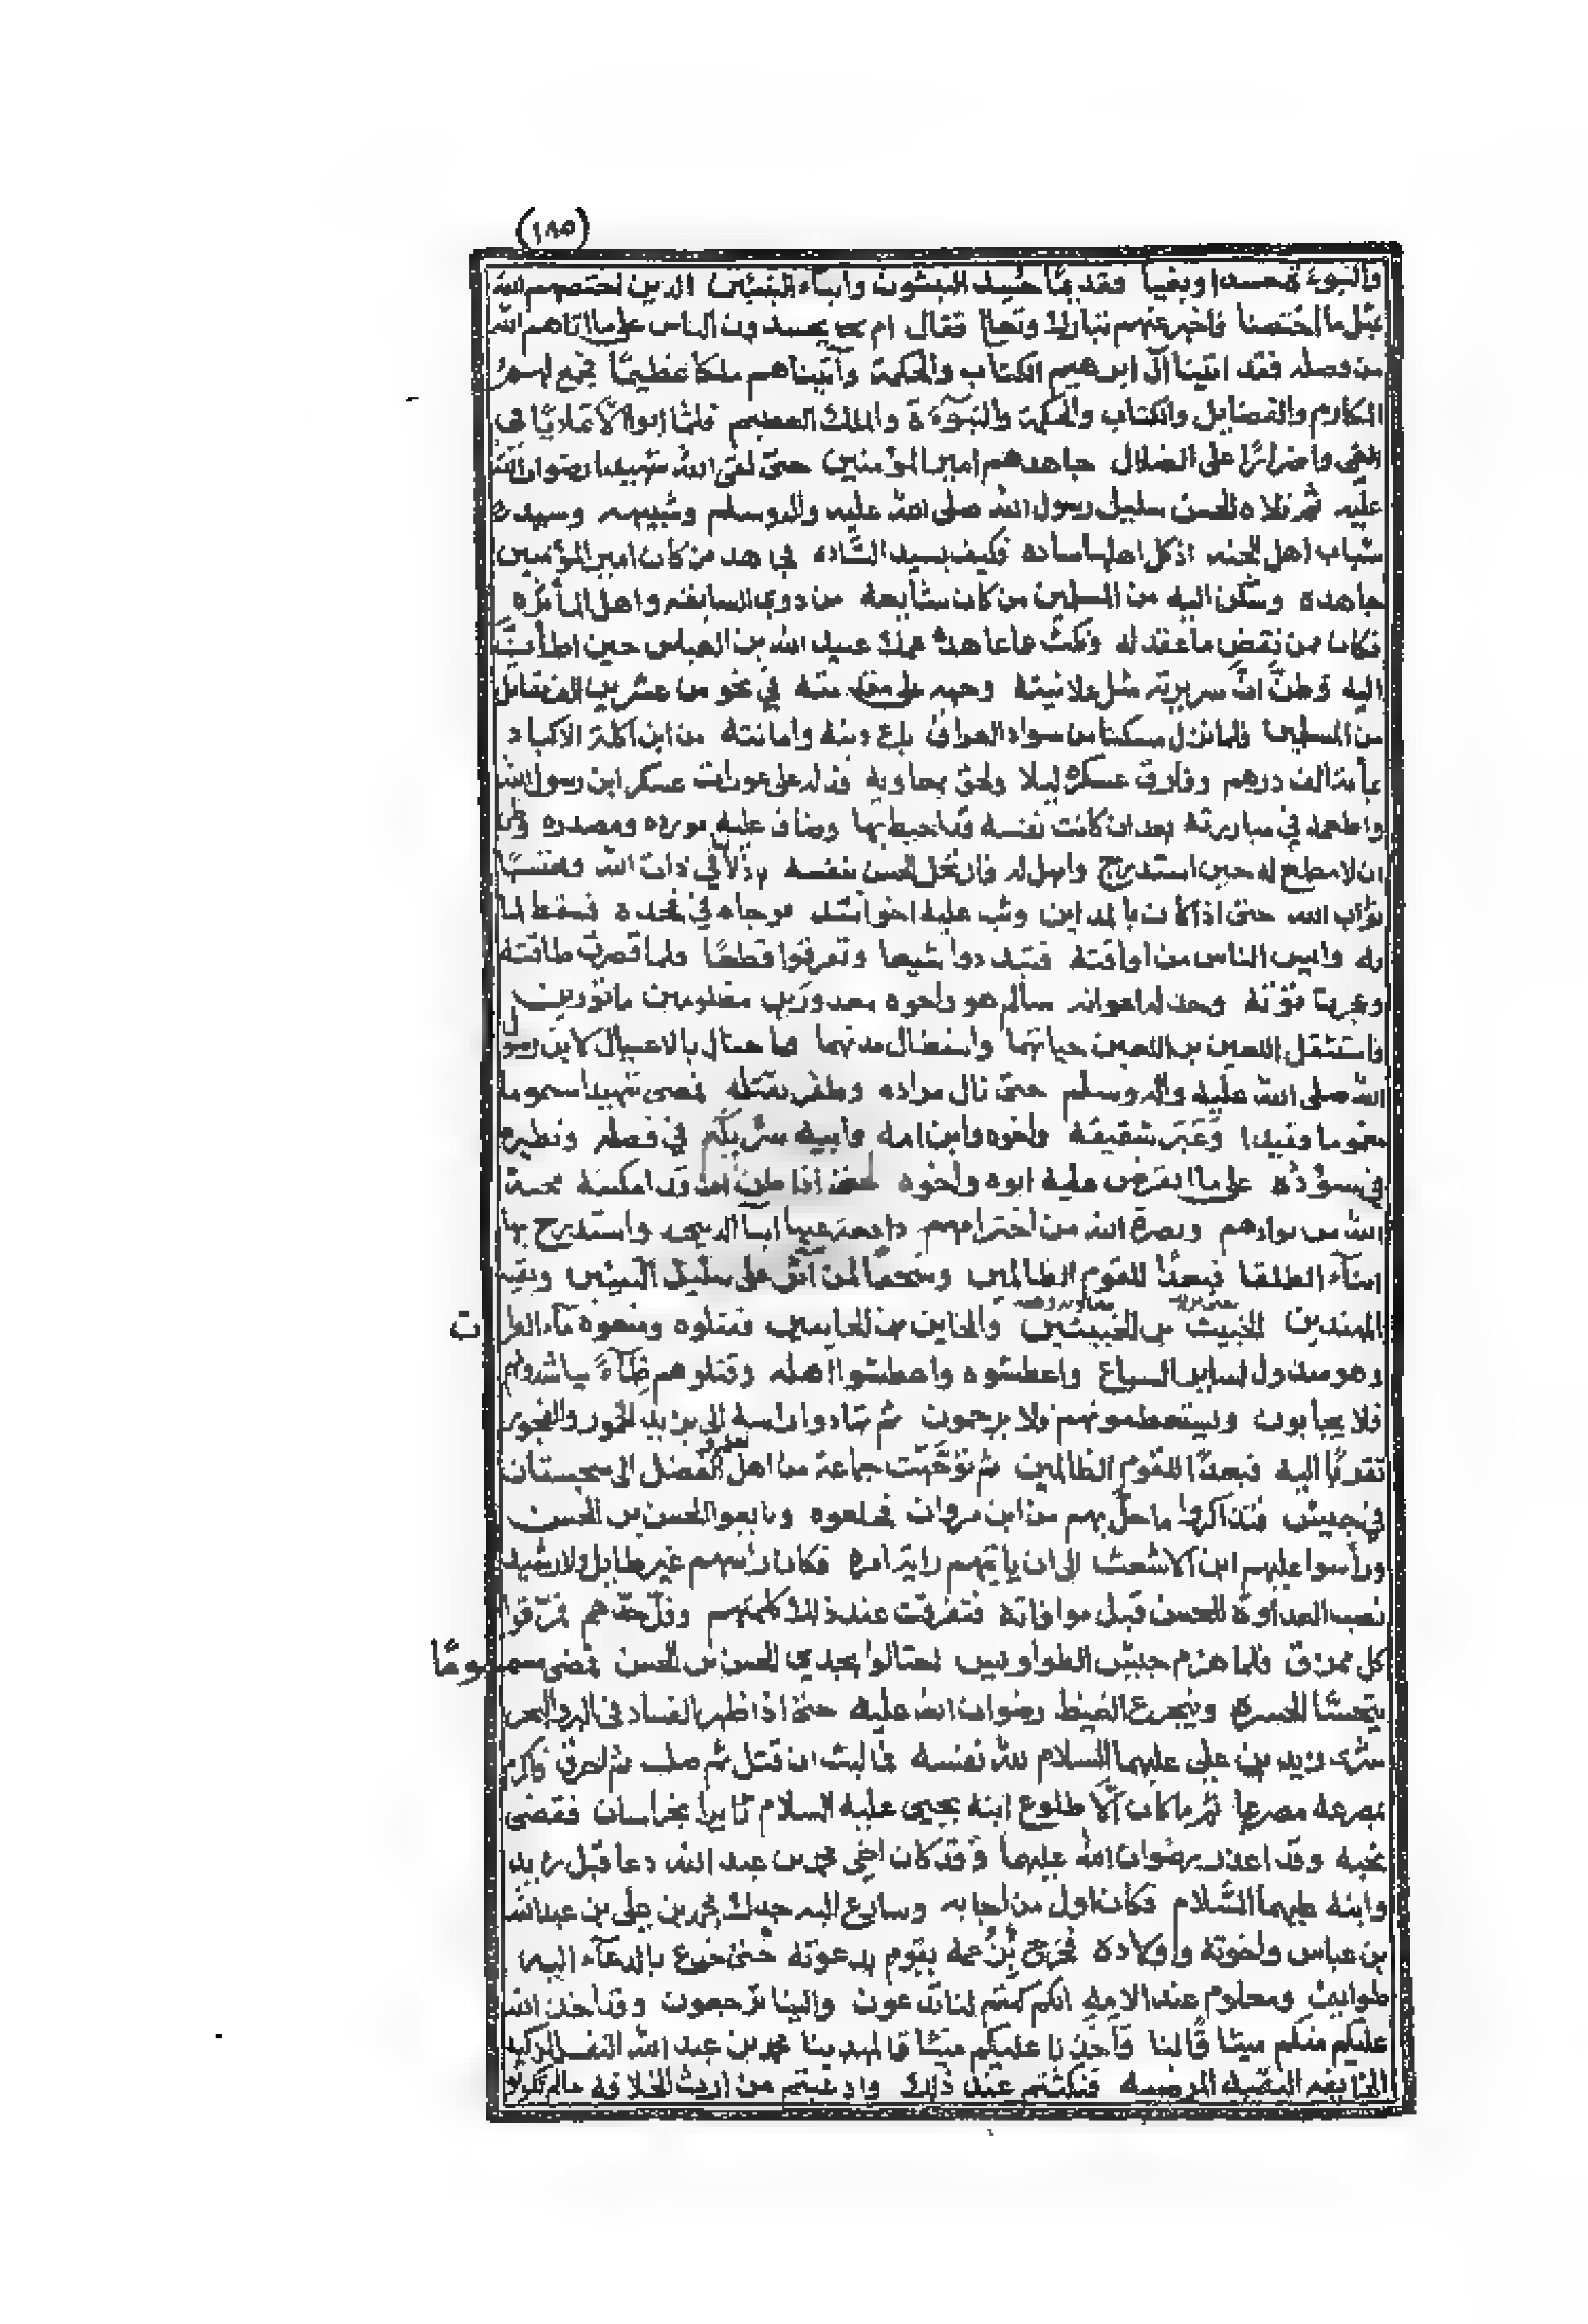 (١٨٥)
والنبوءة حسدا وبغيا وقديمًا حُسِد النبيئون وابناء النبيئين الذين اختصهم الله
بمثل ما اختصنا فاخبر عنهم تبارك وتعالى فقال ام يحسدون الناس على ما اتاهم الله
من فضله فقد اتينا آل ابرهيم الكتاب والحكمة وآتيناهم ملكا عظيمًا فجمع لهم
المكارم والفضايل والكتاب والحكمة والنبوءة والملك العظيم فلمّا ابوا الا تماديًا في
الغي واضرارًا على الضلال جاهدهم امير المؤمنين حتى لقي الله شهيدا رضوان الله
عليه ثم تلاه الحسن سليل رسول الله صلى الله عليه واله وسلم وشبيهه وسيد
شباب اهل الجنه اذ كل اهلها ساده فكيف بسيد السّاده في هد من كان امير المؤمنين
جاهده وسكن اليه من المسلمين من كان شايعه من ذوي السابقه واهل المأثره
فكان من نقض ما عقد له ونكث عما عاهده عمك عبيد الله بن العباس حين اطمأنّ
اليه وظنّ انّ سريرته مثل علانيته وجهه على مقدمته في نحو من عشرين الف مقاتل
من المسلمين فلما نزل مسكنا من سواد العراق باع دينه وامانته من ابن اكلة الاكباد
بمأئة الف درهم وفارق عسكره ليلا ولحق بمعاوية فدله على عورات عسكر ابن رسول الله
واطمعه في مبارزته بعد ان كانت نفسه قد احيط بها وضاق عليه مورده ومصدره وظن
ان لا مطمع له حين استدرج وامهل له فارتحل الحسن بنفسه باذلا في ذات الله ومحتسبا
ثواب الله حتى اذ كان بالمداين وثب عليه اخو اسد فوجاه في فخذه فسقط لما
به وايس الناس من افاقته فتبددوا شيعا وتفرقوا قطعًا فلما قصرت طاقته
وعجزت قوته وخذله اعوانه سالم هو واخوه معذورين مظلومين ماثورين
فاستثقل اللعين بن اللعين حياتهما واستطال مدتهما فاحتال بالاغتيال لابن رسول
الله صلى الله عليه واله وسلم حتى نال مراده وظفر بقتله فمضى شهيدا مسموما
مغموما وفقيدا وغبر شقيقه واخوه وابن امه وابيه وشريكه في فضله ونظيره
في سؤدده على ما انقرض عليه ابوه واخوه حتى اذا ظن ان قد امكنته محبة
الله من بوارهم ونصرة الله من اخترامهم دافعه عنها ابنا الدعي واستدرج بها
ابناء الطلقا فبعدًا للقوم الظالمين وسحقًا لمن آثر على سليل النبيئين وبقية
المهتدين الخبيث بن الخبيثين والخاين بن الخاينين فقتلوه ومنعوه ماء الفرات
وهو مبذول لساير السباع واعطشوه واعطشوا اهله وقتلوهم ظمآء يناشدونهم
فلا يجابون ويستعطفونهم فلا يرحمون ثم تهادوا راسه الى يزيد الخمور والفجور
تقربًا اليه فبعدًا للقوم الظالمين ثم توجّهت جماعة من اهل الفضل الى سجستان
في جيش فتذاكروا ما حلّ بهم من ابن مروان فخلعوه وبايعوا الحسن بن الحسن
ورأسوا عليهم ابن الاشعث الى ان ياتيهم راية امره فكان راسهم غير طايل ولا رشيد
نصب العداوة للحسن قبل موافاته فتفرقت عند ذلك كلمتهم وفلّ حدّهم فمزقوا
كل ممزق فلما هزم جيش الطواويس احتالوا بجدي الحسن بن الحسن فمضى مسمومًا
يتحسّا الحسرة ويتجرع الغيظ رضوان الله عليه حتى اذا ظهر الفساد في البر والبحر
شرى زيد بن علي عليهما السلام لله نفسه فما لبث ان قتل ثم صلب ثم احرق فاكرم
بمصرعه مصرعا ثم ما كان الا طلوع ابنه يحيى عليه السلام ثايرا بخراسان فقضى
نحبه وقد اعذر رضوان الله عليهما وقد كان اخي محمد بن عبد الله دعا قبل زيد
وابنه عليهما السّلام فكان اول من اجابه وسارع اليه جدك محمد بن علي بن عبد الله
بن عباس واخوته واولاده فخرج بزعمه يقوم بدعوته حتى خدع بالدعآء اليه
طوايف ومعلوم عند الامه انكم كنتم لنا تدعون والينا ترجعون وقد اخذ الله
عليكم منكم ميثاقا لنا واخذنا عليكم ميثاقا لمهدينا محمد بن عبد الله النفس الزكيه
الخايفه التقيه المرضيه فنكثتم عند ذلك وادعيتم من ارث الخلافه ما لم تكونوا